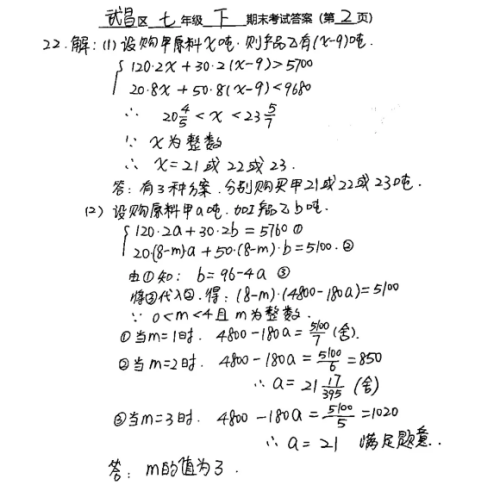 武昌区 七 年级 下 期末考试答案 (第 2 页)
22.解:(1)设购甲原料x吨.则产品乙有(x-9)吨.
{120·2x+30·2(x-9)>5700
20·8x+50·8(x-9)<9680
∴ 20 4/5 < x < 23 5/7
∵ x为整数
∴ x=21或22或23.
答:有3种方案.分别购买甲21或22或23吨.
(2) 设购原料甲a吨.加工产品乙b吨.
{120·2a+30·2b=5760 ①
20·(8-m)a+50·(8-m)·b=5100.②
由①知: b=96-4a ③
将③代入②.得:(8-m)·(4800-180a)=5100
∵ 0<m<4且m为整数.
①当m=1时. 4800-180a=5100/7 (舍).
②当m=2时. 4800-180a=5100/6=850
∴ a=21 17/395 (舍)
③当m=3时. 4800-180a=5100/5=1020
∴ a=21 满足题意..
答: m的值为3.